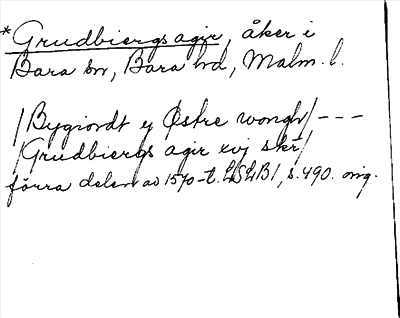 *Grudbiergs agir, åker i
Bara sn, Bara hd, Malm. l.
/Bygiordt y Østre wongh/ - - -
/Grudbiergs agir xvj skr/
förra delen av 1570-t. LSLB 1, s. 490. orig.